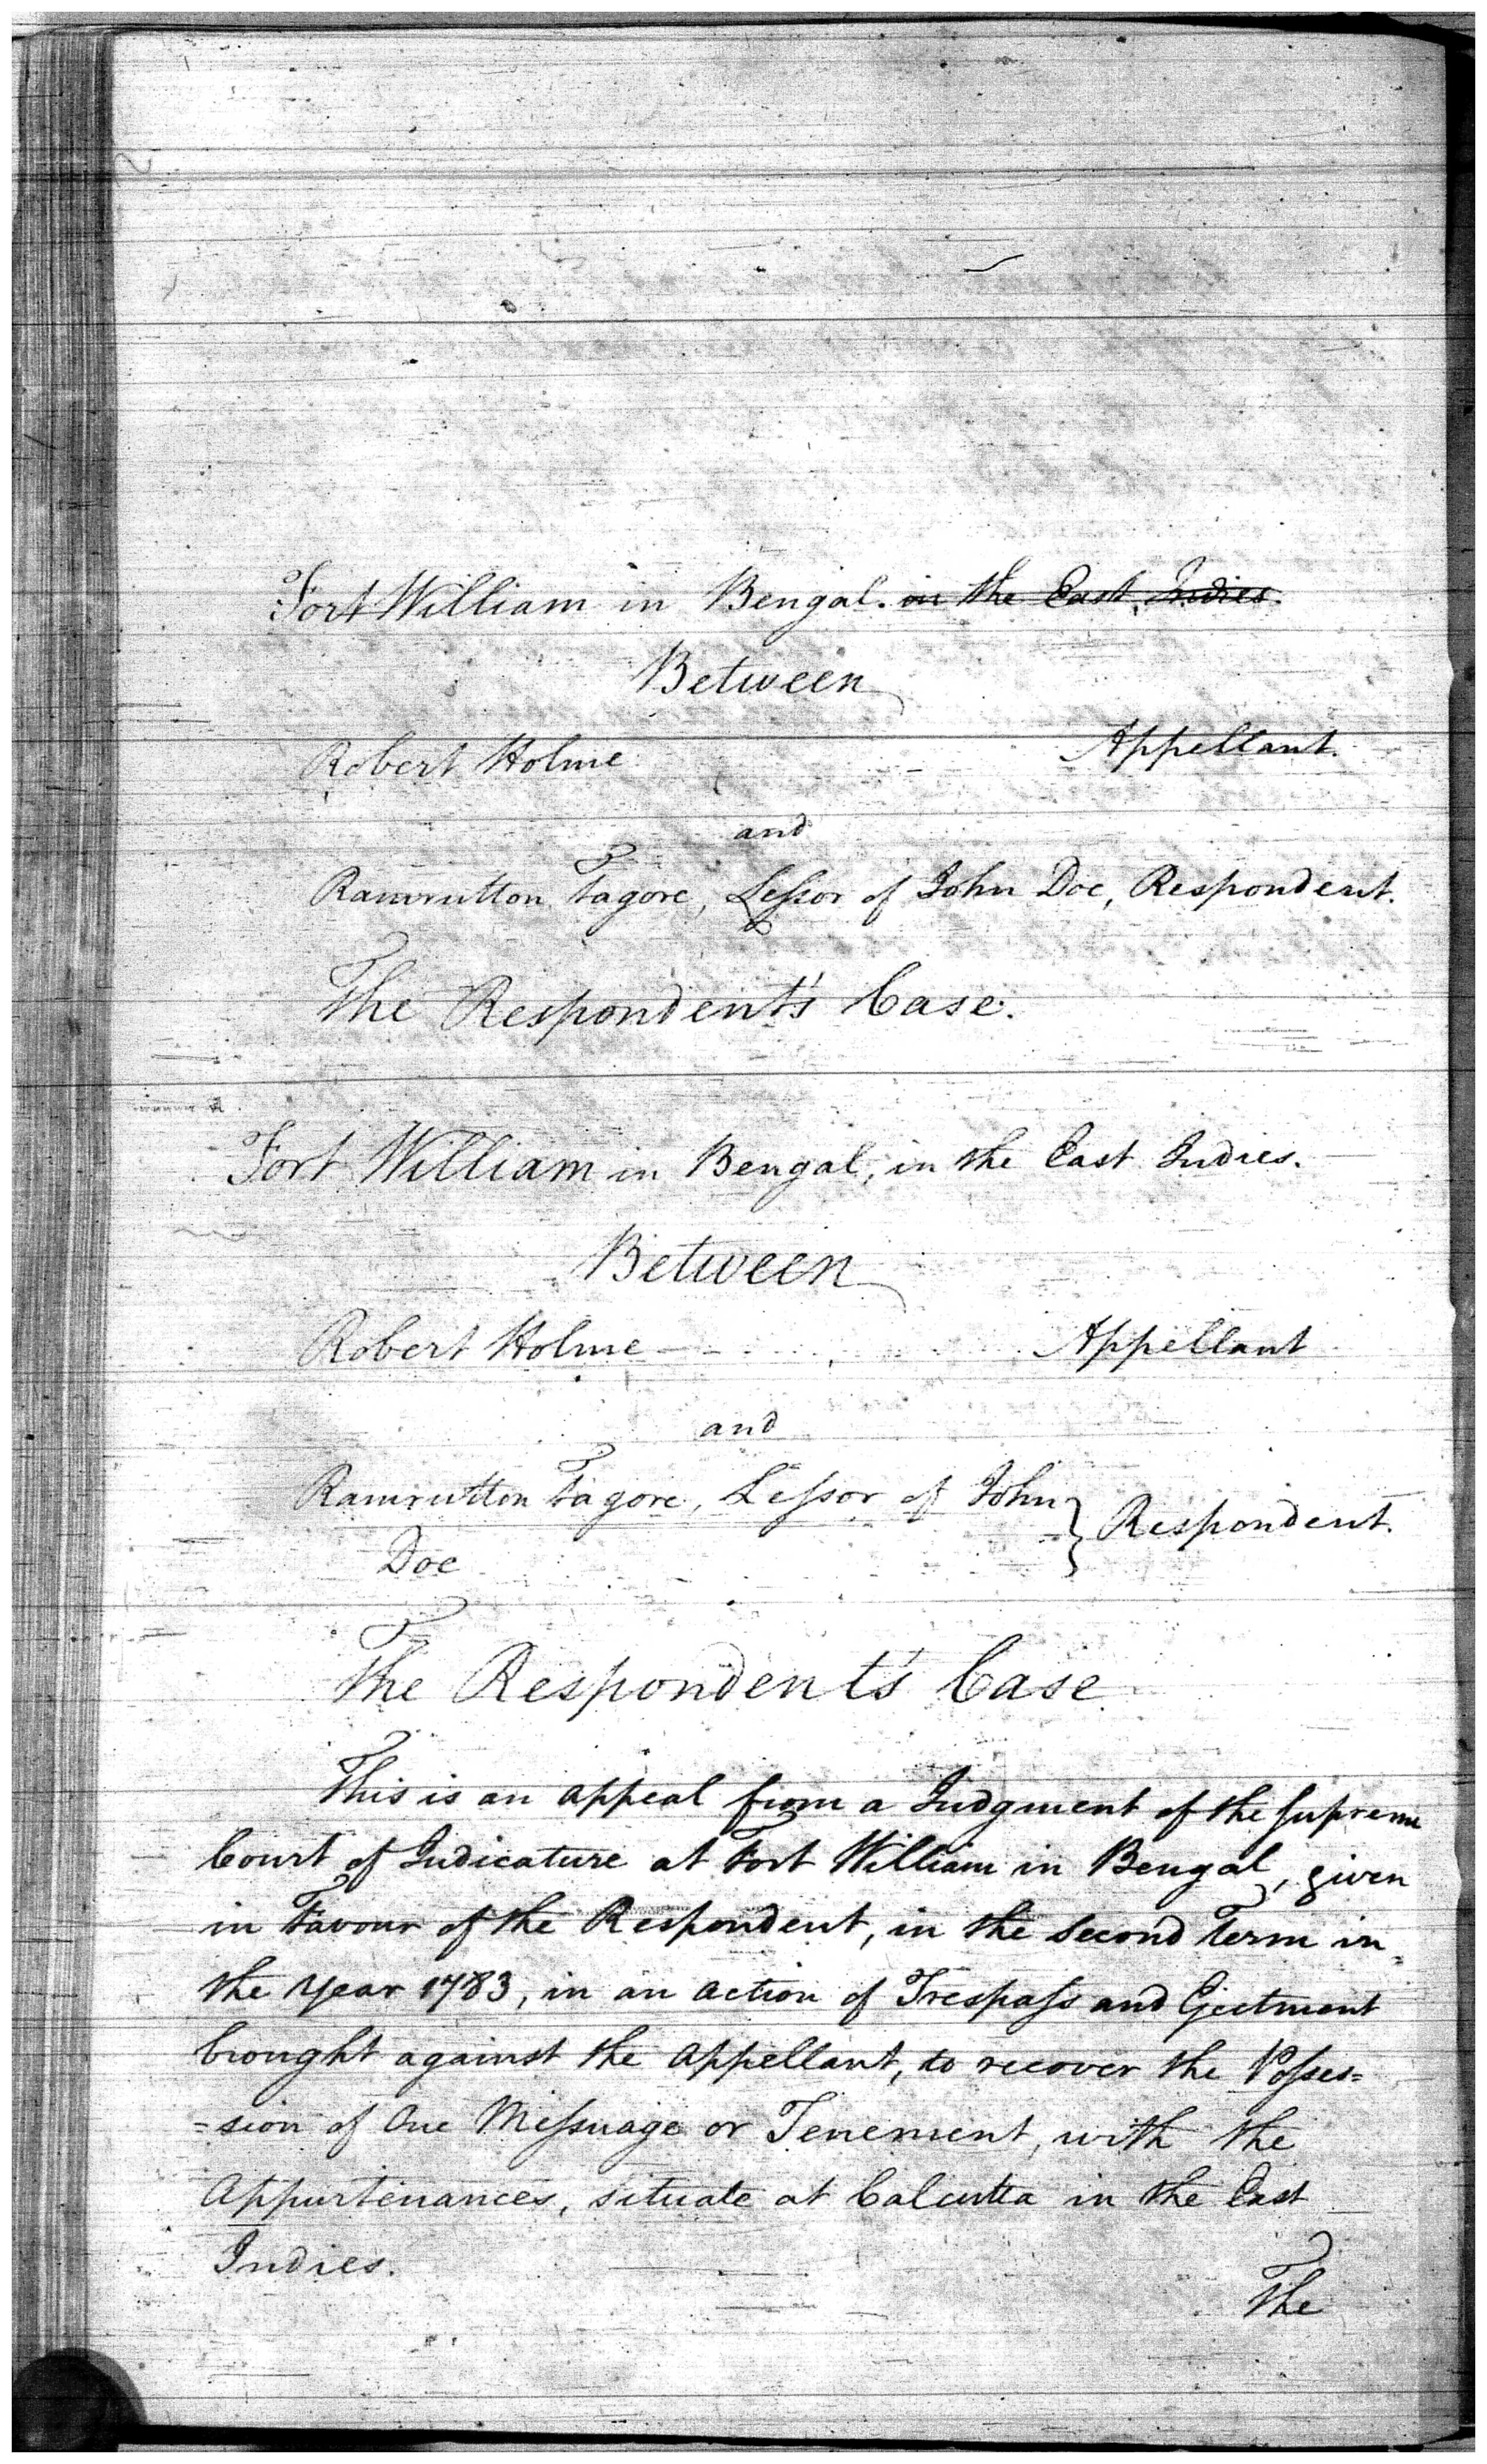 Fort William in Bengal. in the East Indies.
Between
Robert Holme Appellant.
and
Ramrutton Tagore, Leſsor of John Doe, Respondent.
The Respondent's Case.
Fort William in Bengal, in the East Indies.
Between
Robert Holme Appellant
and
Ramrutton Tagore, Leſsor of John } Respondent.
Doe
The Respondent's Case
This is an appeal from a Judgment of the Supreme
Court of Judicature at Fort William in Bengal, given
in Favour of the Respondent, in the Second Term in
the Year 1783, in an Action of Trespaſs and Ejectment
brought against the Appellant, to recover the Poſses=
=sion of One Meſsuage or Tenement, with the
Appurtenances, situate at Calcutta in the East
Indies.
The